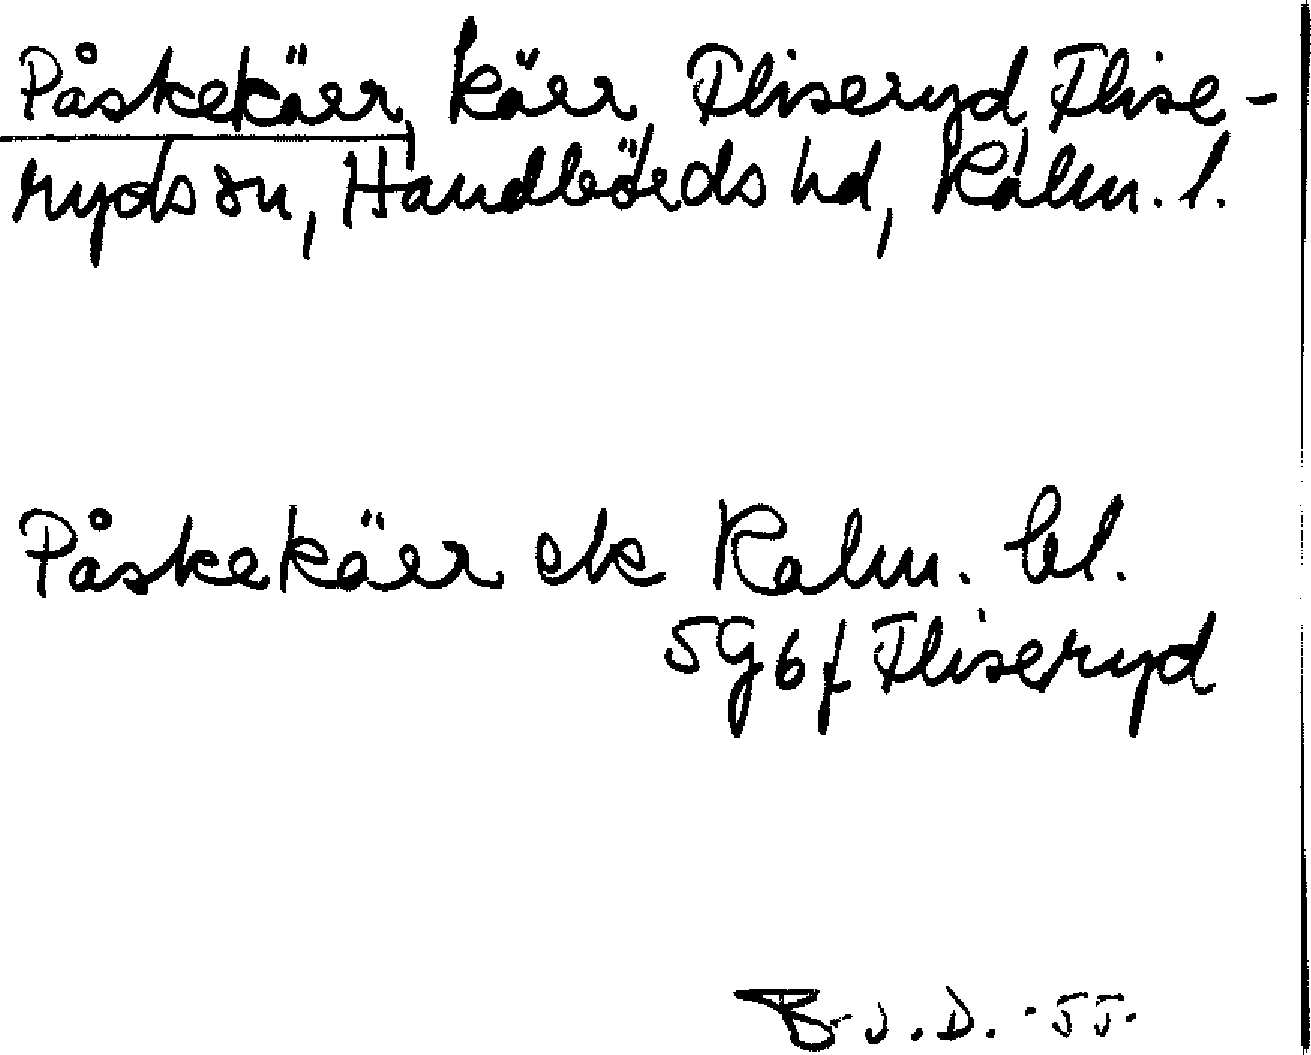 Påskekärr, kärr, Fliseryd, Flise-
ryds sn, Handbörds hd, Kalm. l.
Påskekärr ek Kalm. bl.
5G6f Fliseryd
B.J.D. -55-